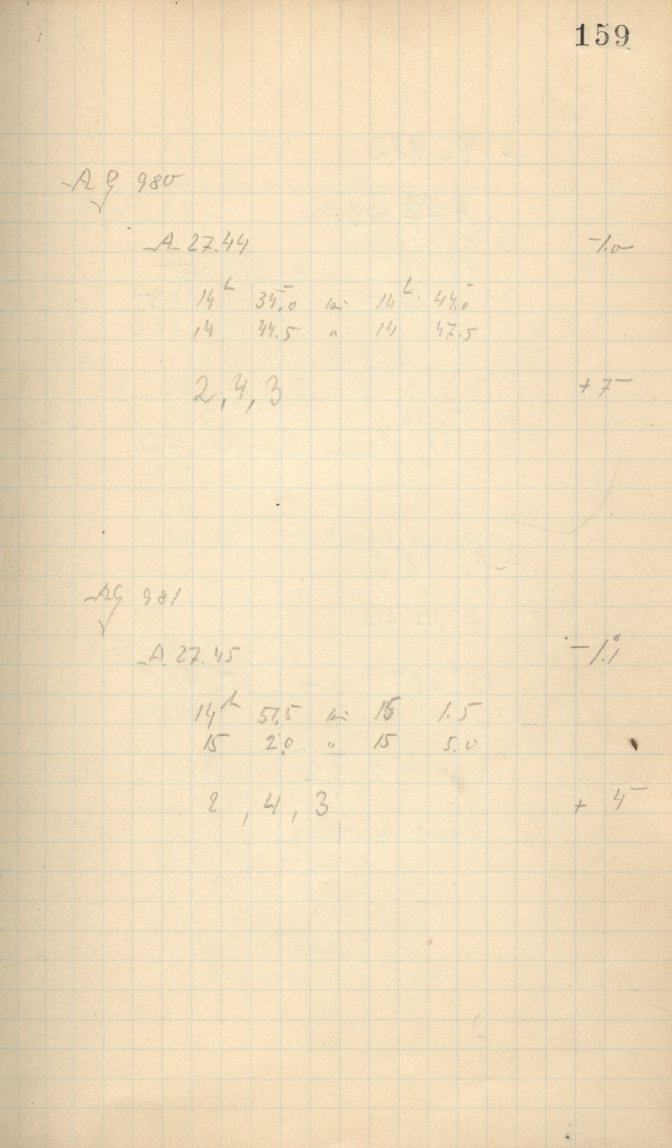 159
AG 980
A 27.44 -1.0
14h 34.0 bis 14h 44.0
14 44.5 " 14 47.5
2, 4, 3 + 7
AG 981
A 27.45 -1.1
14h 51.5 bis 15 1.5
15 2.0 " 15 5.0
2, 4, 3 + 4